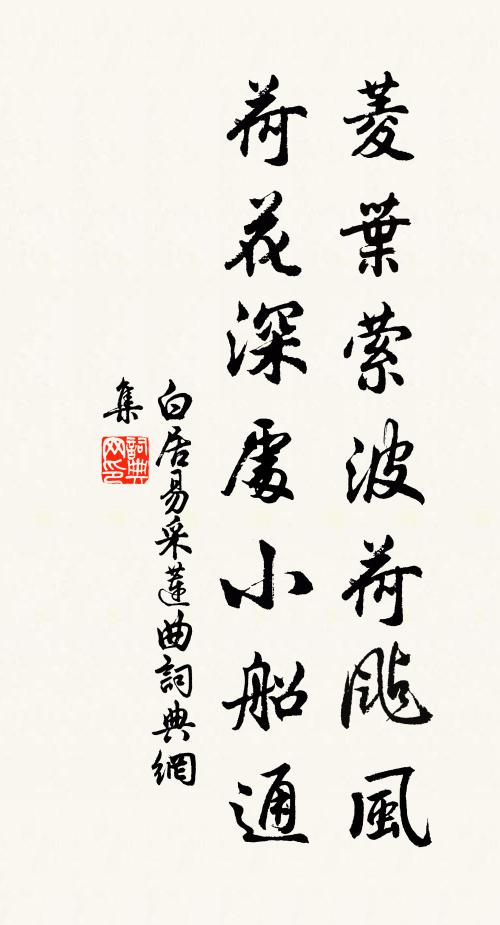 菱葉縈波荷颭風
荷花深處小船通
白居易采蓮曲詞典網
集
詞典網印